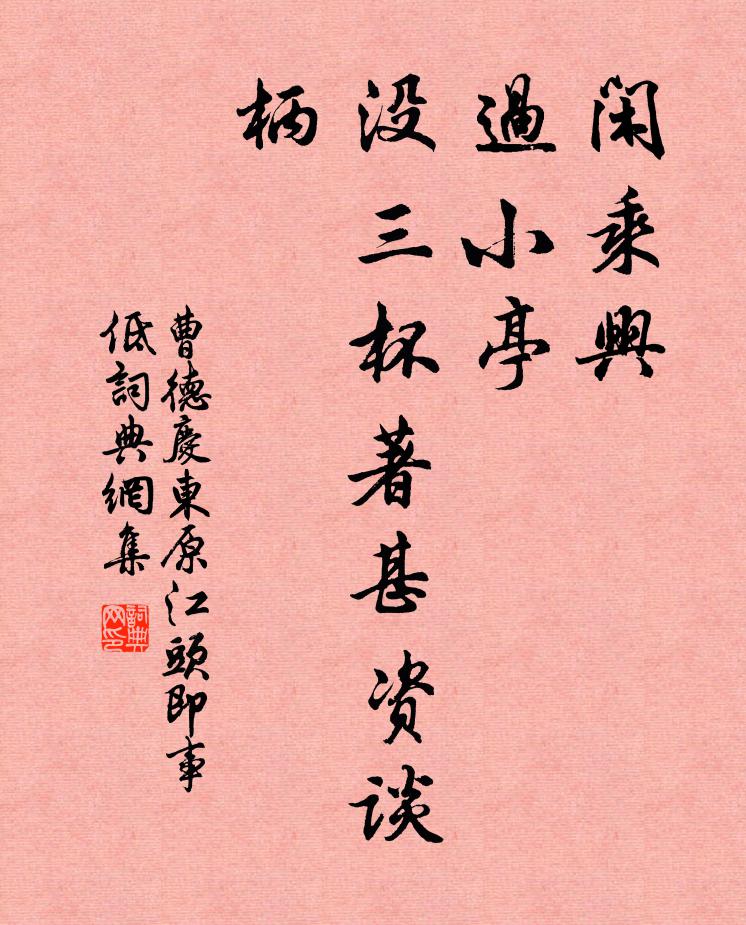 閑乘興
過小亭
没三杯著甚资谈
柄
曹德慶東原江頭即事
低詞典網集
詞典
网印